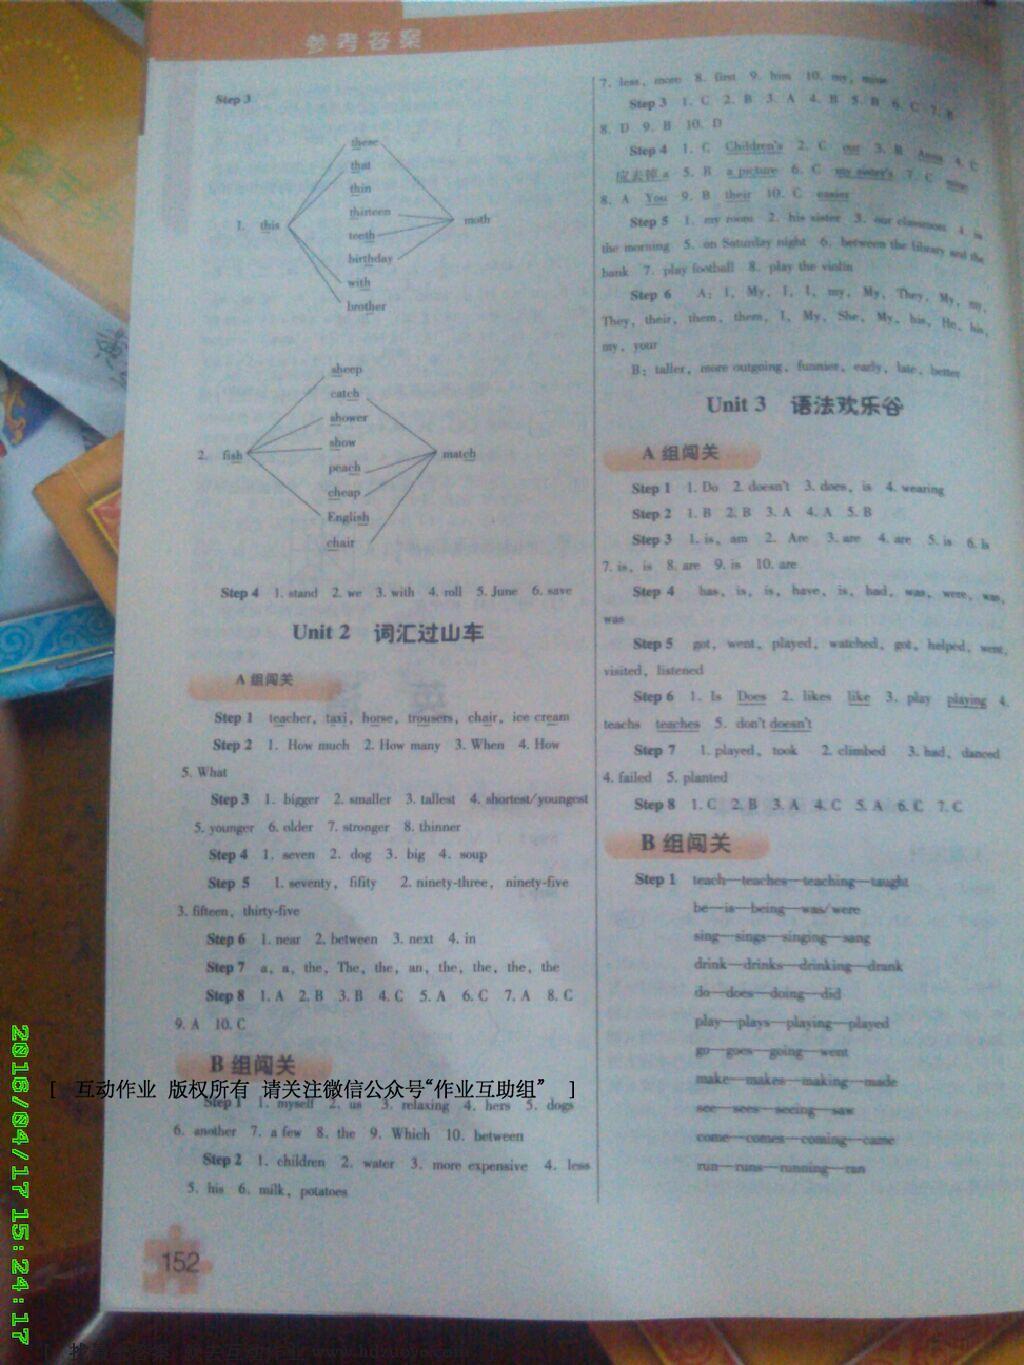 参考答案
Step 3
these
that
thin
thirteen
1. this
moth
teeth
birthday
with
brother
sheep
catch
shower
show
2. fish
match
peach
cheap
English
chair
Step 4 1. stand 2. we 3. with 4. roll 5. June 6. save
Unit 2 词汇过山车
A 组闯关
Step 1 teacher, taxi, horse, trousers, chair, ice cream
Step 2 1. How much 2. How many 3. When 4. How
5. What
Step 3 1. bigger 2. smaller 3. tallest 4. shortest/youngest
5. younger 6. older 7. stronger 8. thinner
Step 4 1. seven 2. dog 3. big 4. soup
Step 5 1. seventy, fifity 2. ninety-three, ninety-five
3. fifteen, thirty-five
Step 6 1. near 2. between 3. next 4. in
Step 7 a, a, the, The, the, an, the, the, the, the
Step 8 1. A 2. B 3. B 4. C 5. A 6. C 7. A 8. C
9. A 10. C
B 组闯关
[ 互动作业 版权所有 请关注微信公众号“作业互助组” ]
Step 1 1. myself 2. us 3. relaxing 4. hers 5. dogs
6. another 7. a few 8. the 9. Which 10. between
Step 2 1. children 2. water 3. more expensive 4. less
5. his 6. milk, potatoes
152
7. less, more 8. first 9. him 10. my, mine
Step 3 1. C 2. B 3. A 4. B 5. B 6. C 7. B
8. D 9. B 10. D
Step 4 1. C Children's 2. C our 3. B 4. C
应去掉 a 5. B a picture 6. C my sister's 7. C
8. A You 9. B their 10. C easier
Step 5 1. my room 2. his sister 3. our classroom 4. in
the morning 5. on Saturday night 6. between the library and the
bank 7. play football 8. play the violin
Step 6 A: I, My, I, I, my, My, They, My, my,
They, their, them, them, I, My, She, My, his, He, his,
my, your
B: taller, more outgoing, funnier, early, late, better
Unit 3 语法欢乐谷
A 组闯关
Step 1 1. Do 2. doesn't 3. does, is 4. wearing
Step 2 1. B 2. B 3. A 4. A 5. B
Step 3 1. is, am 2. Are 3. are 4. are 5. is 6. Is
7. is, is 8. are 9. is 10. are
Step 4 has, is, is, have, is, had, was, were, was,
was
Step 5 got, went, played, watched, got, helped, went,
visited, listened
Step 6 1. Is Does 2. likes like 3. play playing 4.
teachs teaches 5. don't doesn't
Step 7 1. played, took 2. climbed 3. had, danced
4. failed 5. planted
Step 8 1. C 2. B 3. A 4. C 5. A 6. C 7. C
B 组闯关
Step 1 teach—teaches—teaching—taught
be—is—being—was/were
sing—sings—singing—sang
drink—drinks—drinking—drank
do—does—doing—did
play—plays—playing—played
go—goes—going—went
make—makes—making—made
see—sees—seeing—saw
come—comes—coming—came
run—runs—running—ran
2016/04/17 15:24:17